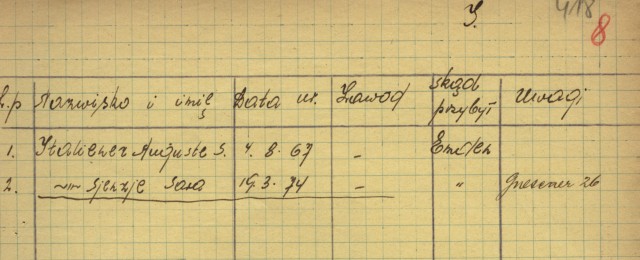 J.
418
8
L.p Nazwisko i imię Data ur. Zawód skąd przybył Uwagi
1. Italiener Auguste S. 4. 8. 67 - Emden
2. -"- Sjenzje Sara 19.3.74 - " Gnesener 26